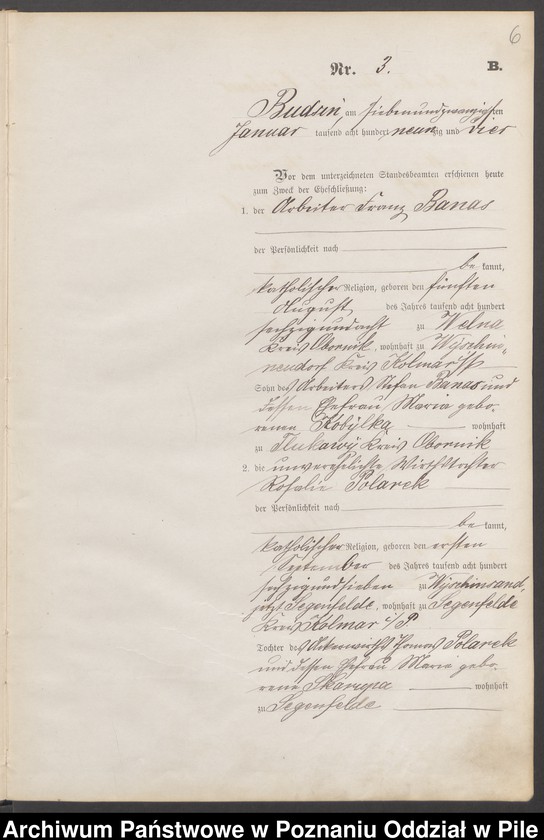 6
Nr. 3. B.
Budsin, am siebenundzwanzigsten
Januar tausend acht hundert neunzig und vier
Vor dem unterzeichneten Standesbeamten erschienen heute
zum Zweck der Eheschließung:
1. der Arbeiter Franz Banas
der Persönlichkeit nach
be kannt,
katholischer Religion, geboren den fünften
August des Jahres tausend acht hundert
sechzigundacht zu Welna
Kreis Obornik, wohnhaft zu
neudorf Kreis Kolmar i/P
Sohn des Arbeiters Stefan Banas und
dessen Ehefrau Maria gebo-
renen Kobylka wohnhaft
zu Kreis Obornik
2. die unverehelichte Wirthstochter
Rosalie Polarek
der Persönlichkeit nach
be kannt,
katholischer Religion, geboren den ersten
September des Jahres tausend acht hundert
sechzigundsieben zu
jetzt Segenfelde, wohnhaft zu Segenfelde
Kreis Kolmar i/P
Tochter des Ackerwirths Thomas Polarek
und dessen Ehefrau Maria gebo-
rene Skarupa wohnhaft
zu Segenfelde
Archiwum Państwowe w Poznaniu Oddział w Pile